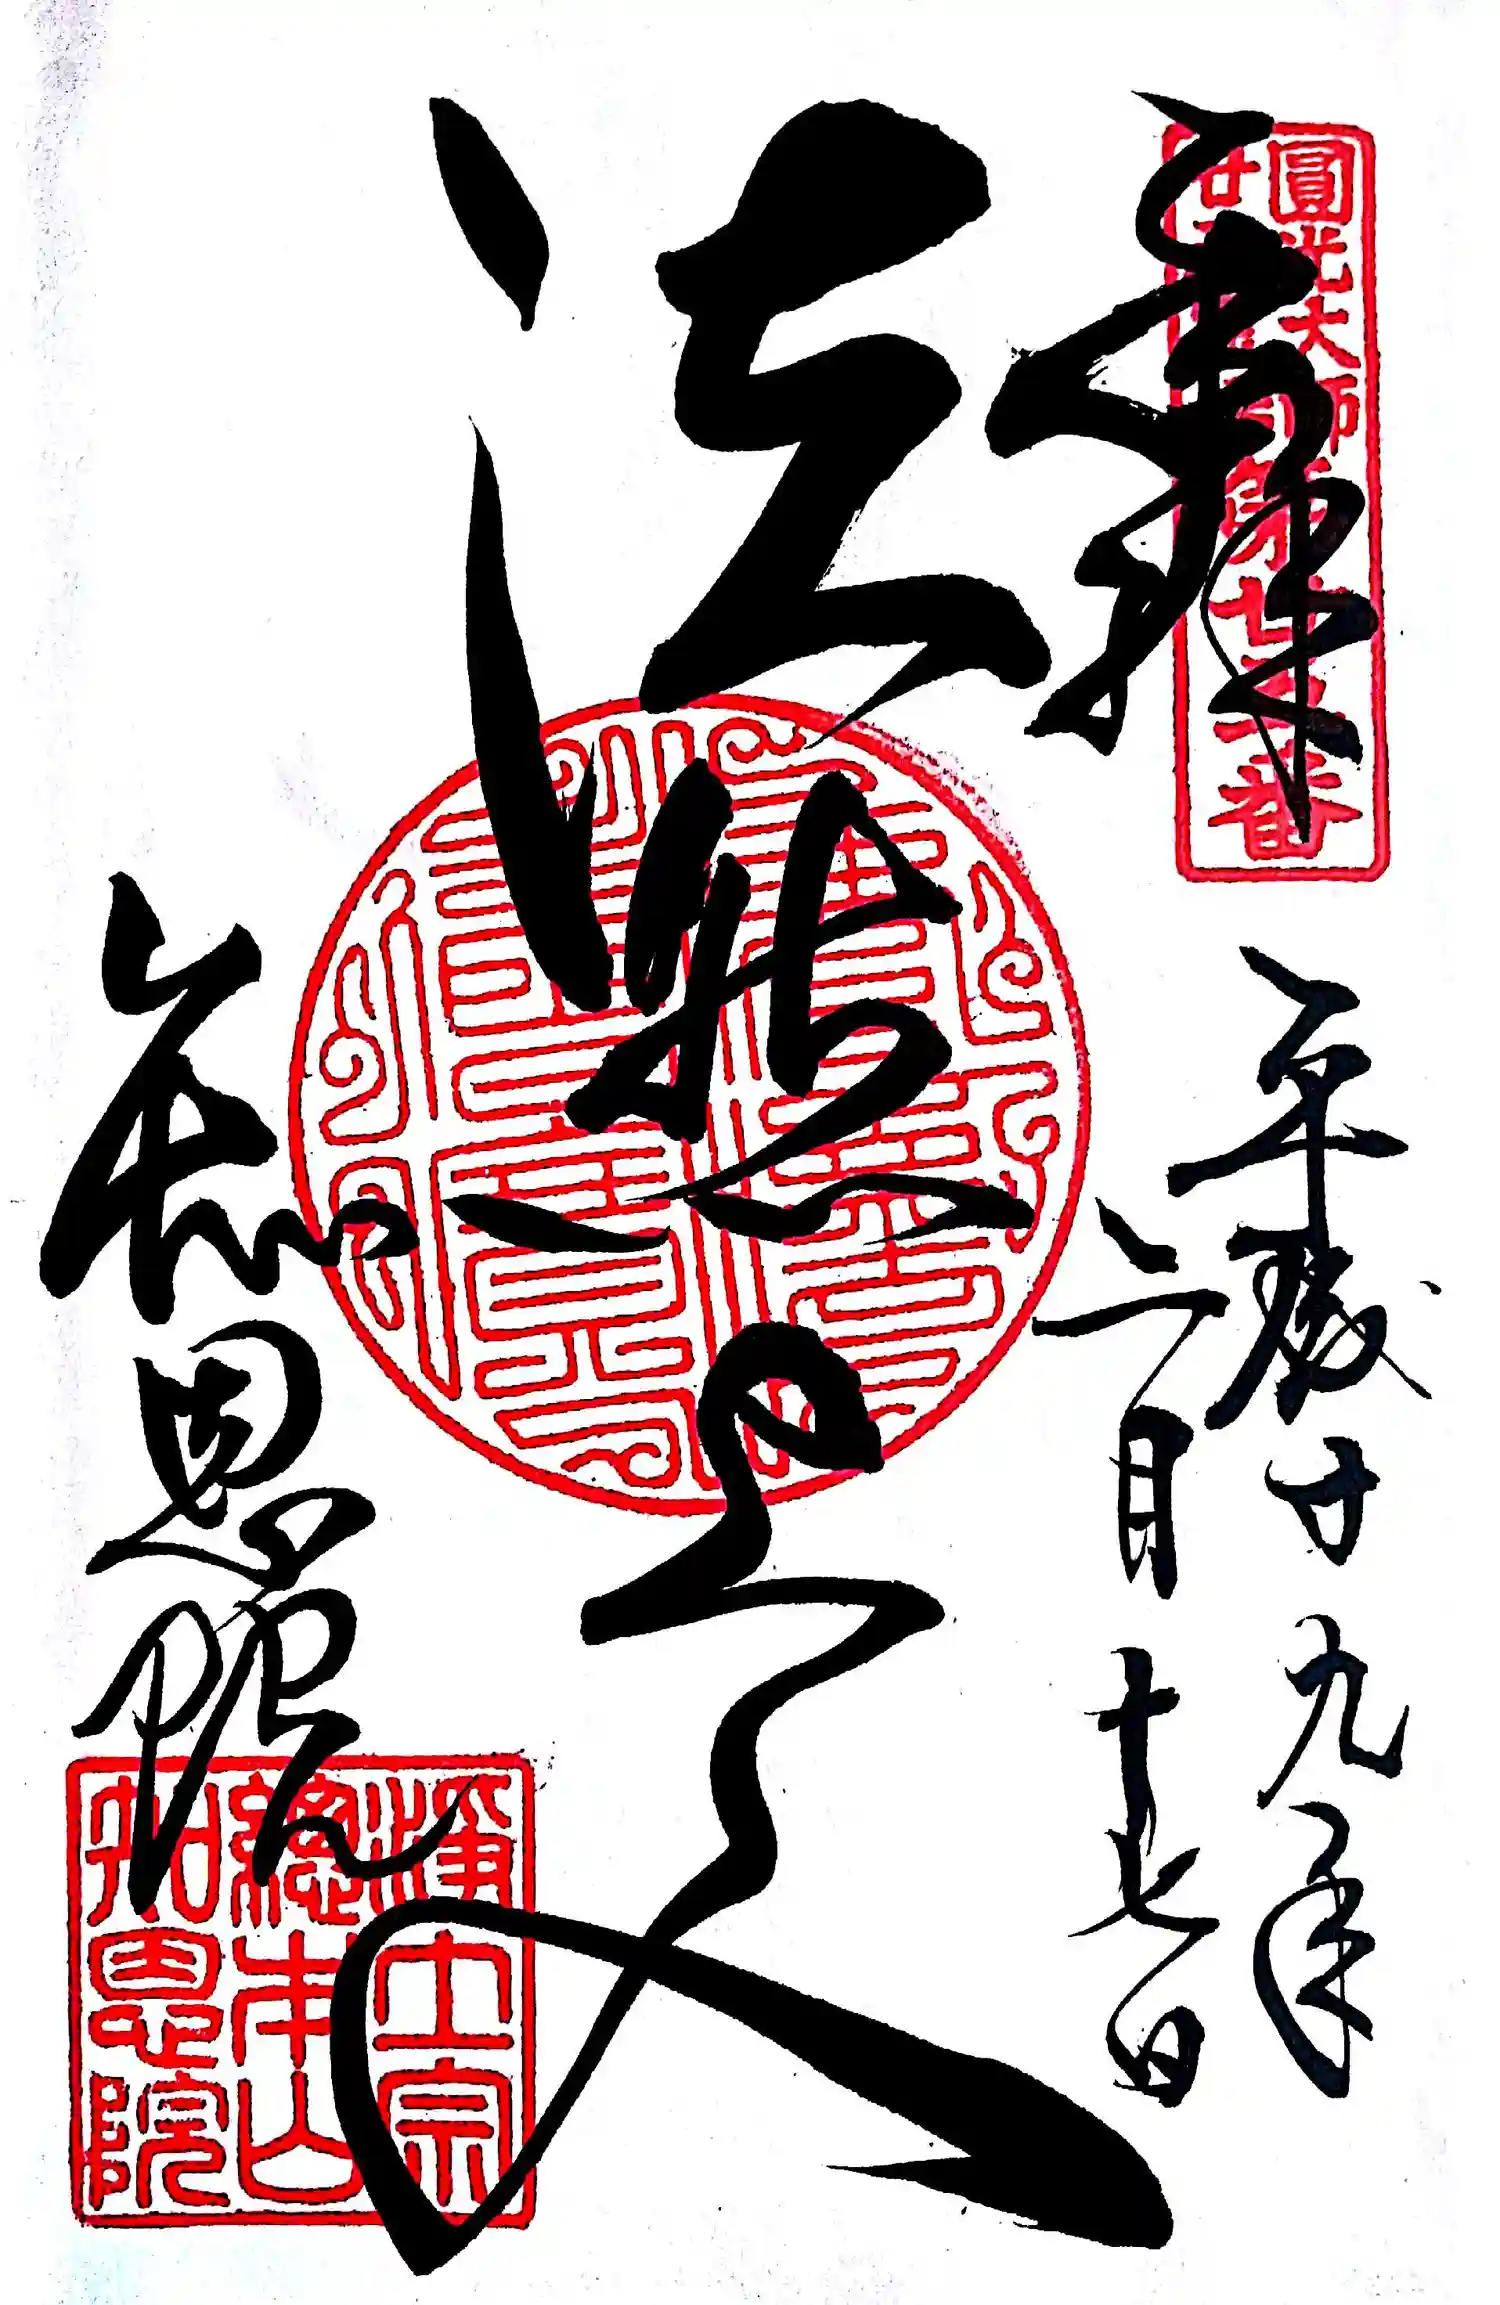 奉拝
圓光大師
第廿五番
平成廿九年
二月十七日
法然上人
知恩院
淨土宗
總本山
知恩院